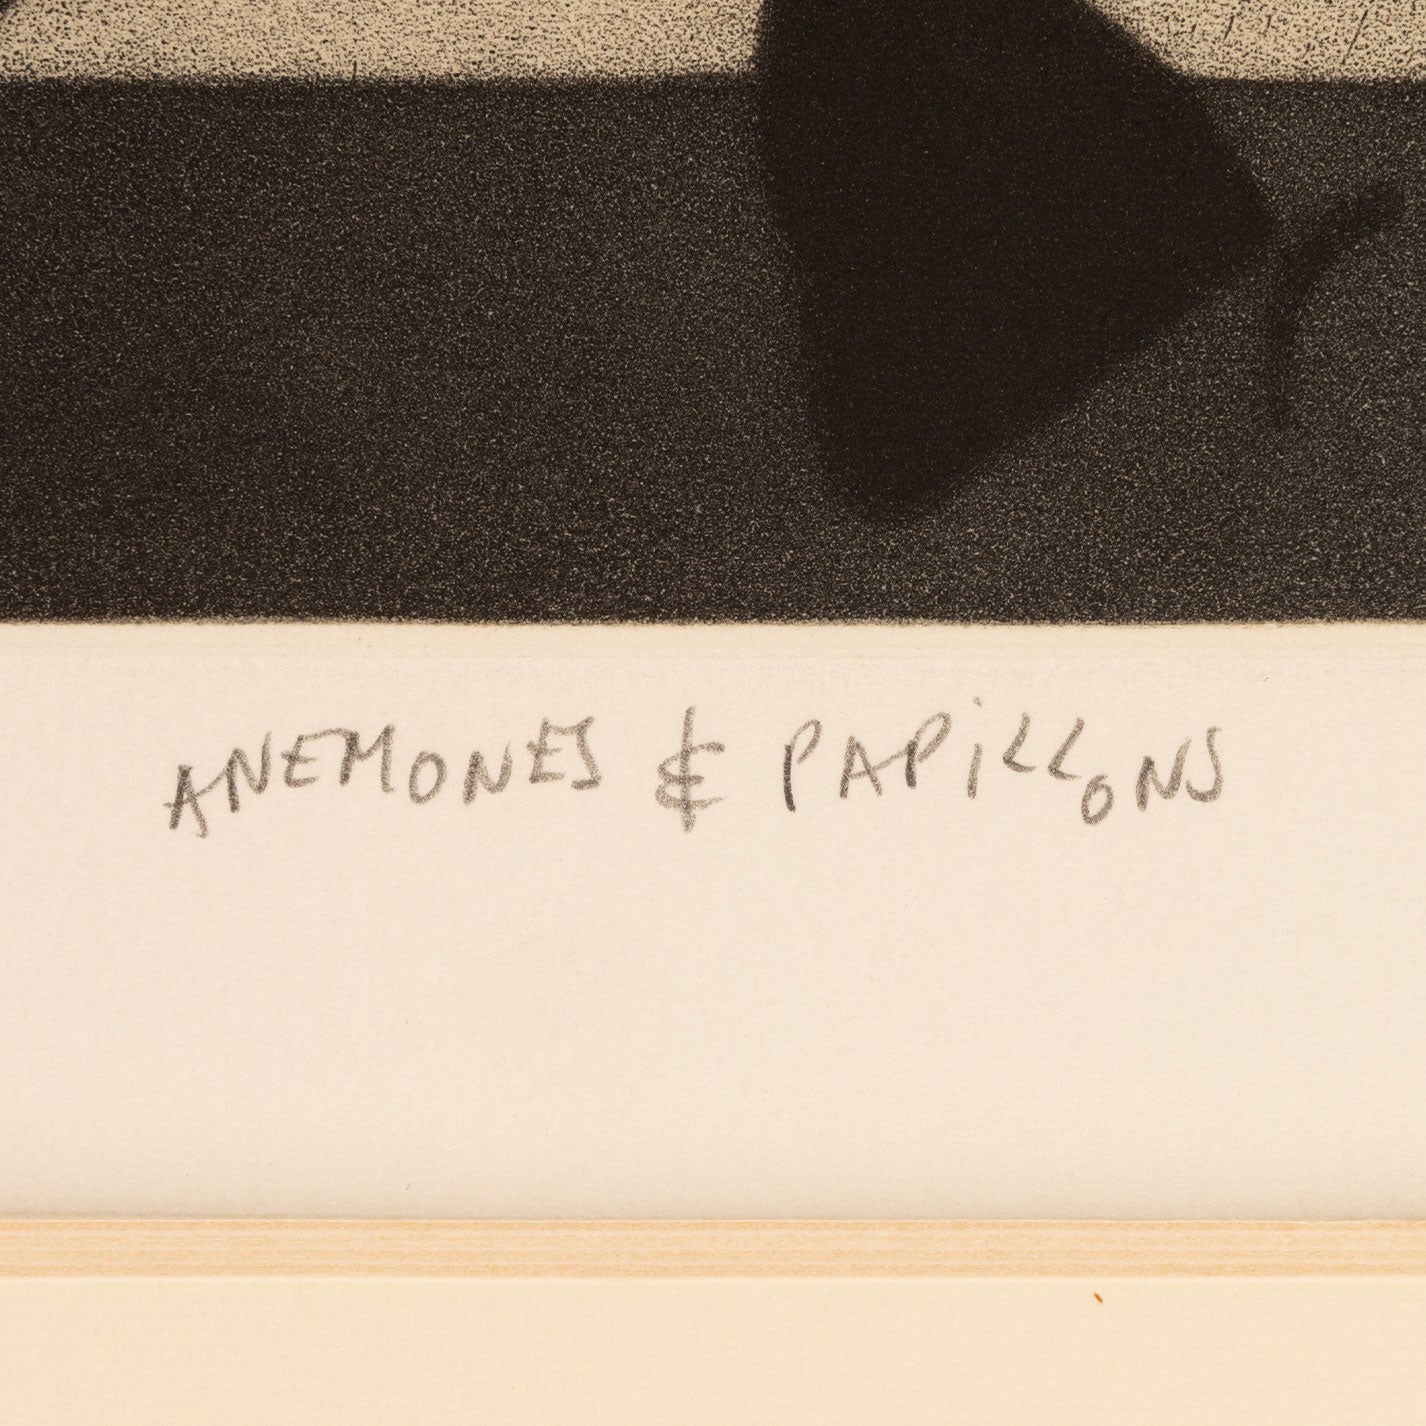 ANEMONES & PAPiLLONS